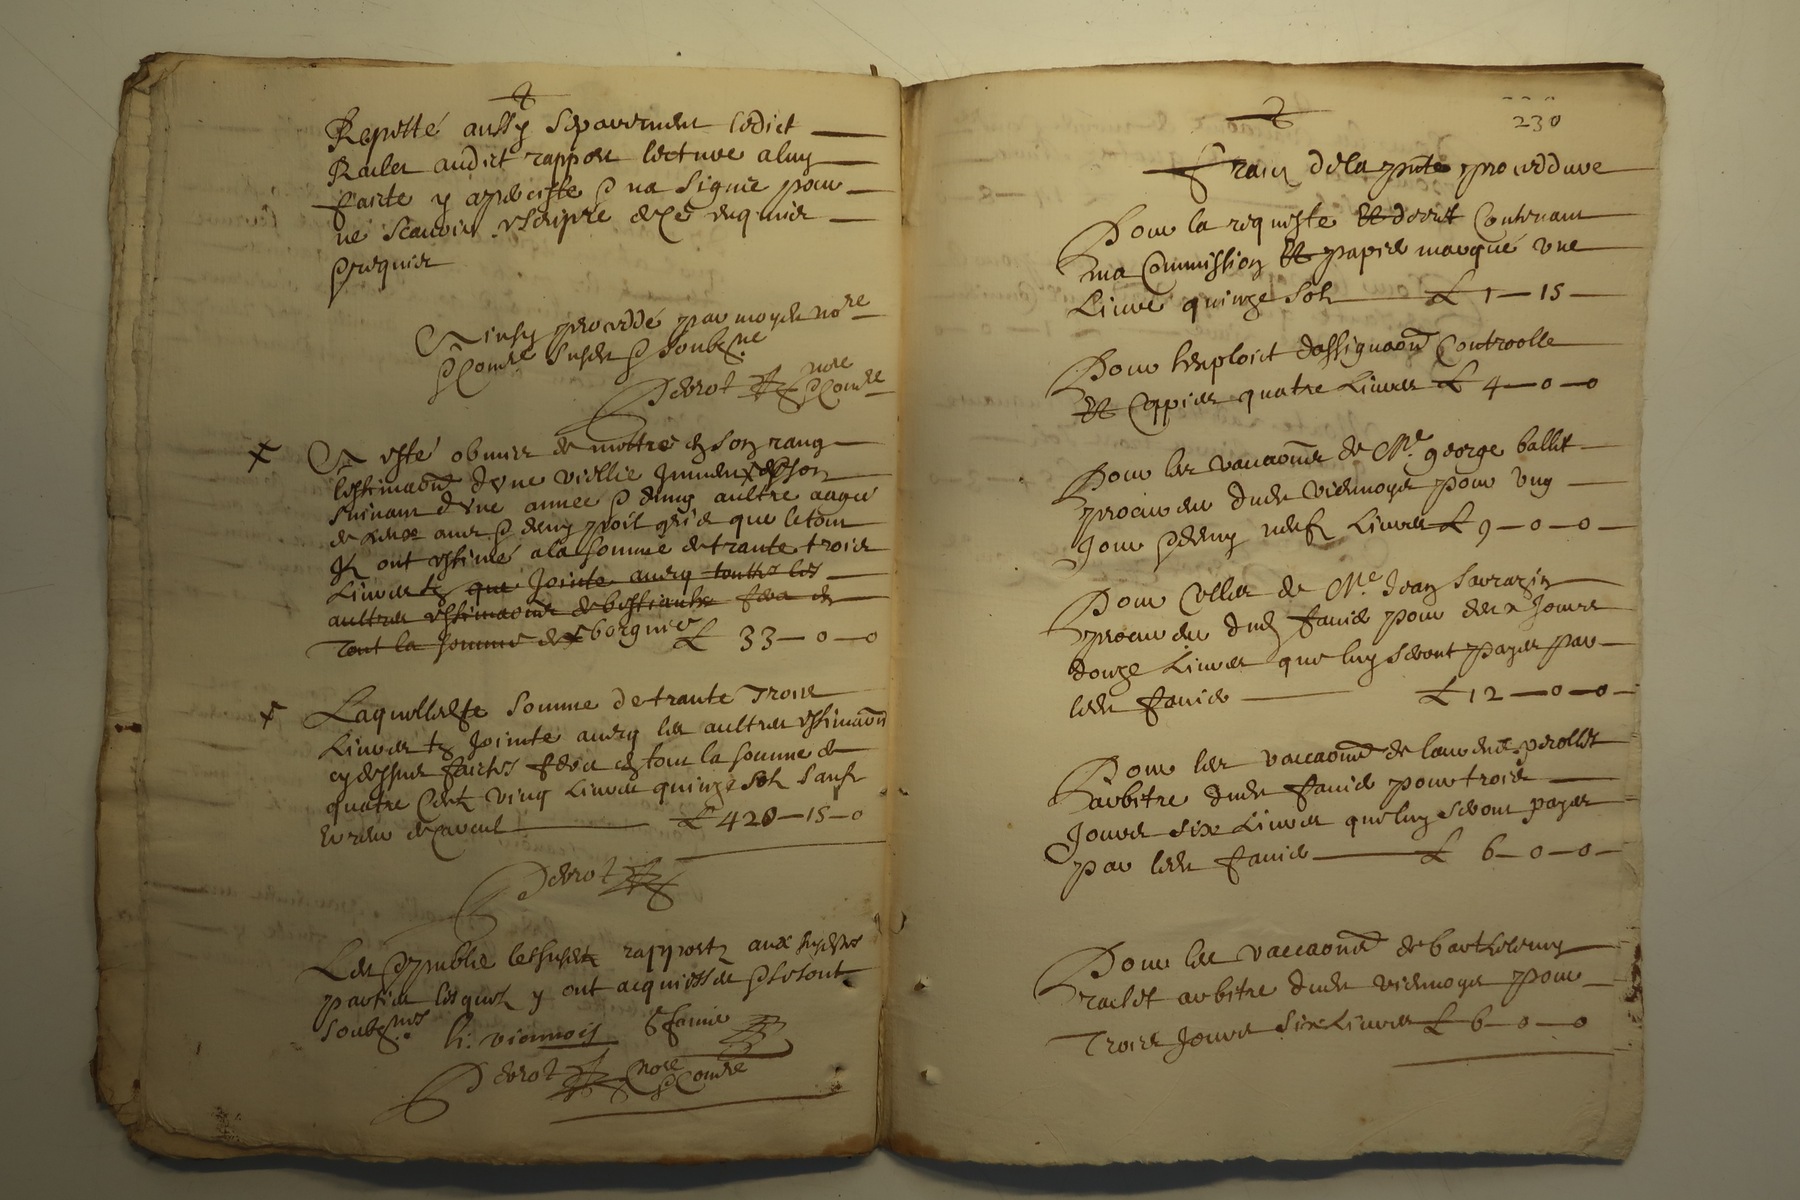 Repetté aussy separement ledict
Raclet audict rapport lecture a luy
faicte y a persisté & na signé pour
ne scavoir escripre de ce enquis &
requis
Ainsy procedé par moydt nore
& Comre susdt & soubzne
Perrot nore & Comre
A esté obmis de mettre en son rang
lestimaon dune vieille jument
suivant dune annee & demy aultre aagé
de deux ans & demy poil gris que le tout
Ilz ont estimé a la somme de trante trois
Livres tz que Jointe avecq touttes les
aultres estimaons de bestiaulx fera en
Tout la somme de borgnie £ 33-0-0
Laquelle somme de trante Trois
Livres tz Jointe avecq les aultres estimaons
cy dessus faictes fera en tout la somme de
quatre Centz vingt Livres quinze solz sauf
erreur de calcul £ 420-15-0
Perrot
Leu & publié lesusdt rapportz aux susdtes
parties lesquelz y ont acquiessés & se sont
soubznes li. viennois S fanie
Perrot nore & Comre
230
Fraicz de la pnte proceddure
Pour la requeste Et decret Contenant
ma Commission Et papier marqué une
Livre quinze solz £ 1-15-
Pour lexploict dassignaon Controolle
Et Coppies quatre Livres £ 4-0-0
Pour les vaccaons de Me george ballet
procureur dudt viennoys pour ung
jour & demy neuf Livres £ 9-0-0-
Pour Celles de Me Jean Sarrazin
procureur dud fanie pour deux Jours
douze Livres que luy seront payes par
ledt fanie £ 12-0-0-
Pour les vaccaons de laurens perollet
arbitre dudt fanie pour trois
Jours six Livres que luy seront payes
par ledt fanie £ 6-0-0-
Pour les vaccaons de barthelemy
raclet arbitre dudt viennoys pour
Trois Jours six Livres £ 6-0-0